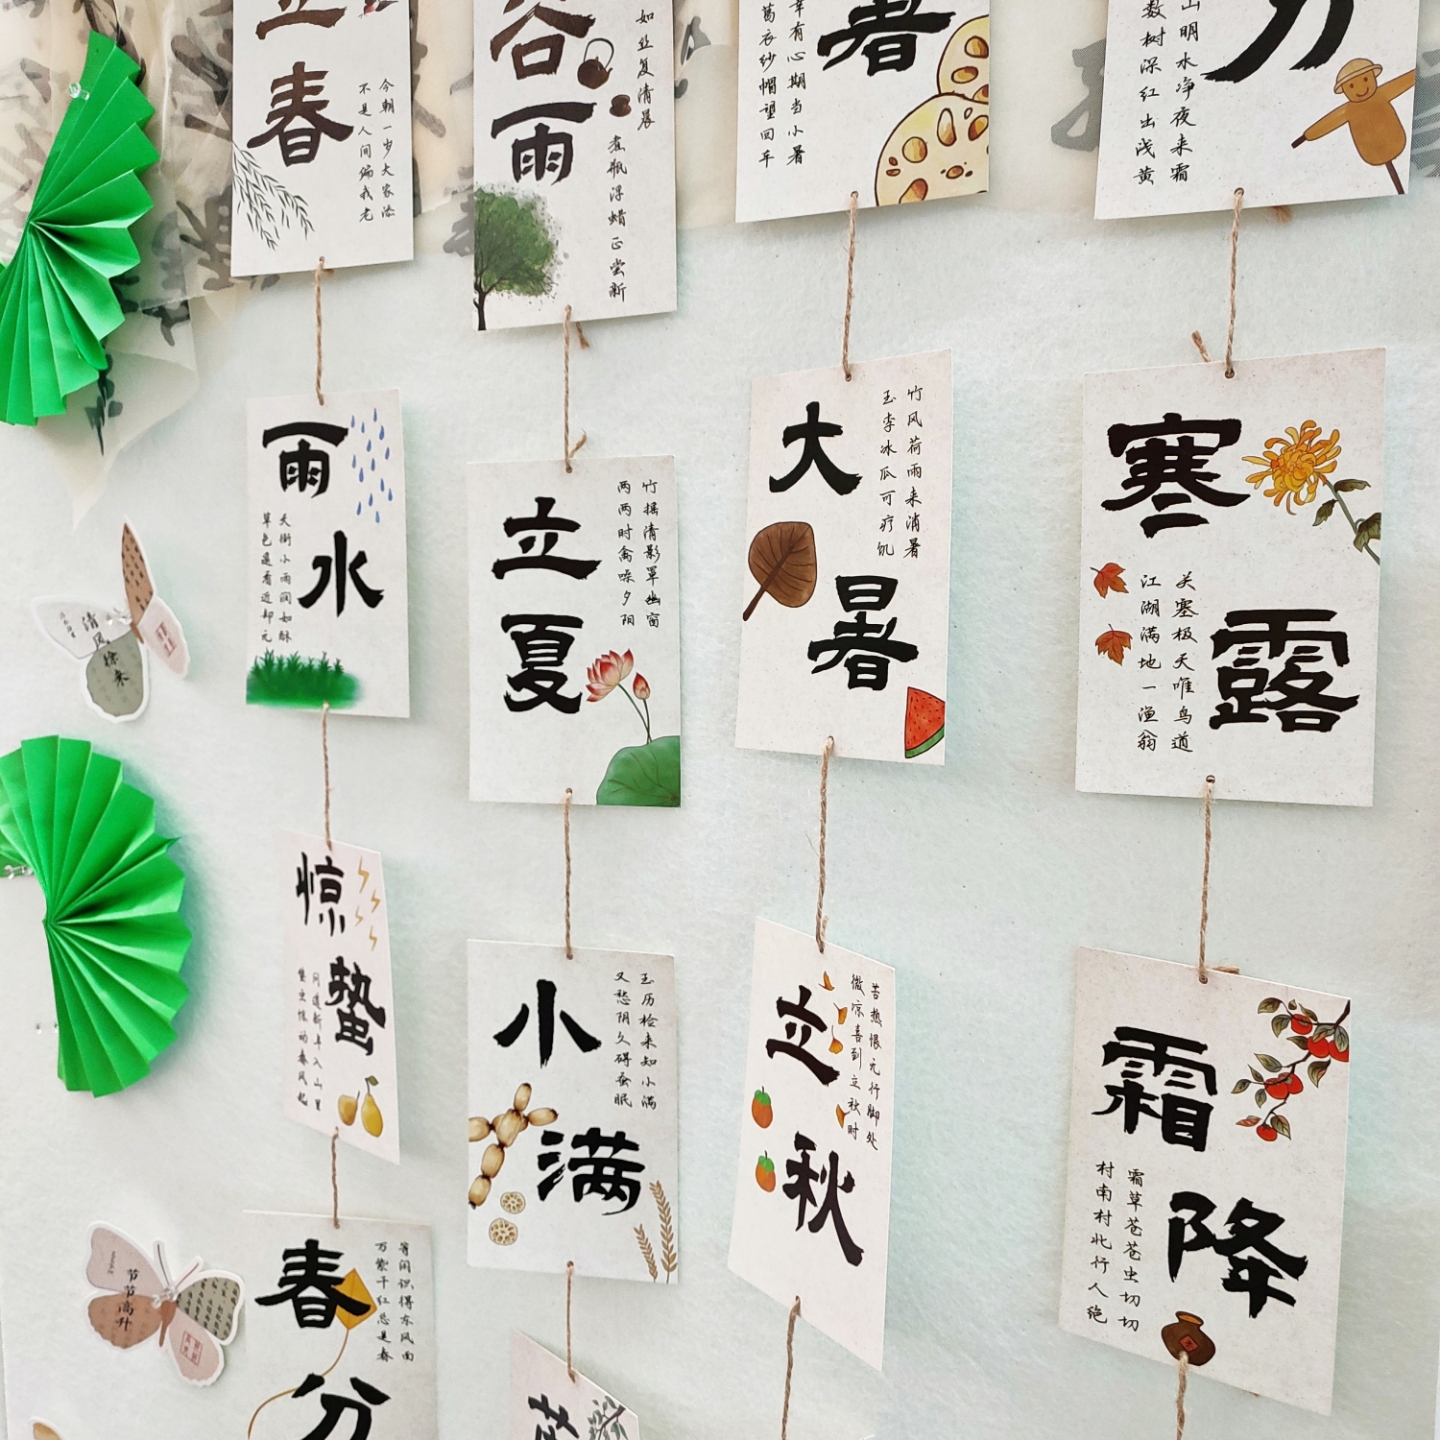 立
春
今朝一岁大家添
不是人间偏我老
雨
水
天街小雨润如酥
草色遥看近却无
惊
蛰
问道新年入山里
蛰虫惊动春风起
春
分
等闲识得东风面
万紫千红总是春
谷
雨
如丝复清晨
煮瓶浮蜡正尝新
立
夏
竹摇清影罩幽窗
两两时禽噪夕阳
小
满
玉历检来知小满
又愁阴久碍蚕眠
暑
幸有心期当小暑
葛衣纱帽望回车
大
暑
竹风荷雨来消暑
玉李冰瓜可疗饥
立
秋
苦热恨无行脚处
微凉喜到立秋时
分
山明水净夜来霜
数树深红出浅黄
寒
露
关塞极天唯鸟道
江湖满地一渔翁
霜
降
霜草苍苍虫切切
村南村北行人绝
清风
徐来
节节高升